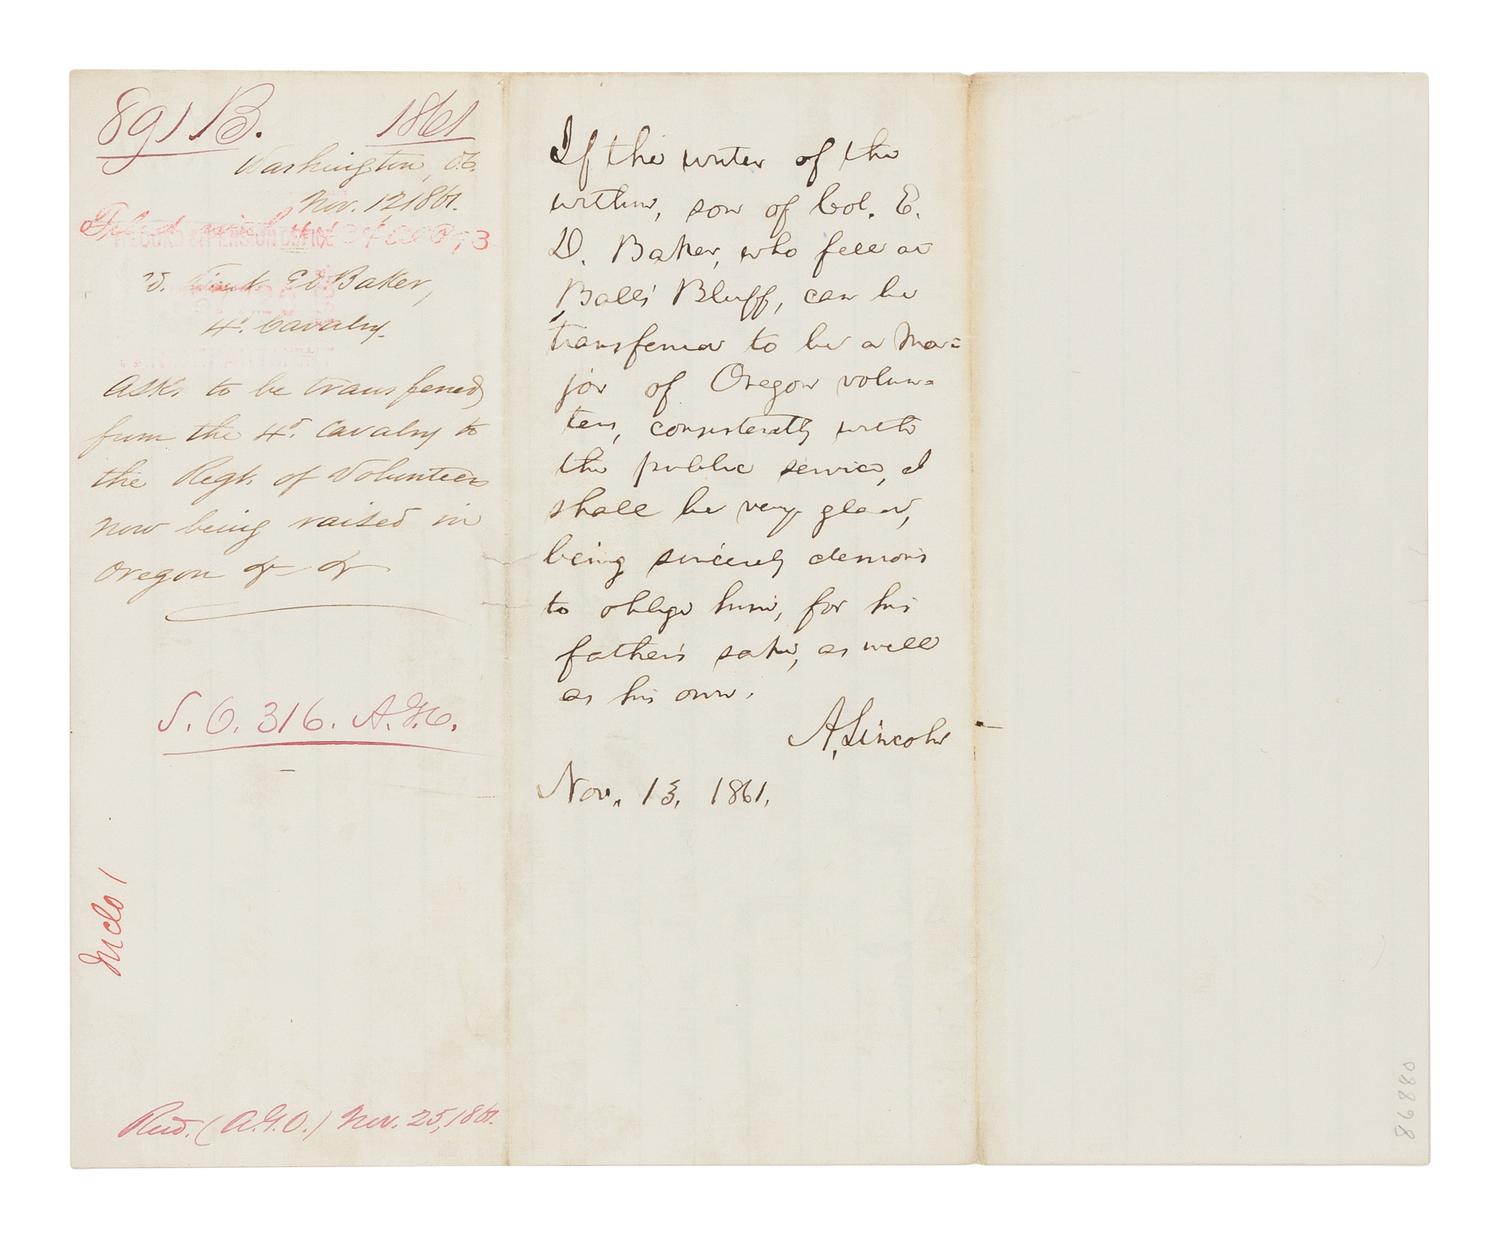 891 B. 1861
Washington, D.C.
Nov. 12, 1861.
Filed with
RECORD & PENSION OFFICE
2d. Lieut. E D Baker,
4th. Cavalry.
Asks to be transferred
from the 4th. Cavalry to
the Regt. of Volunteers
now being raised in
Oregon &c &c
S. O. 316. A.G.O.
Inclo 1
Recd. (A.G.O.) Nov. 25, 1861.
If the writer of the
within, son of Col. E.
D. Baker, who fell at
Ball's Bluff, can be
transferred to be a Ma=
jor of Oregon volun=
teers, consistently with
the public service, I
shall be very glad,
being sincerely desirous
to oblige him, for his
father's sake, as well
as his own.
A. Lincoln
Nov. 13, 1861.
86880